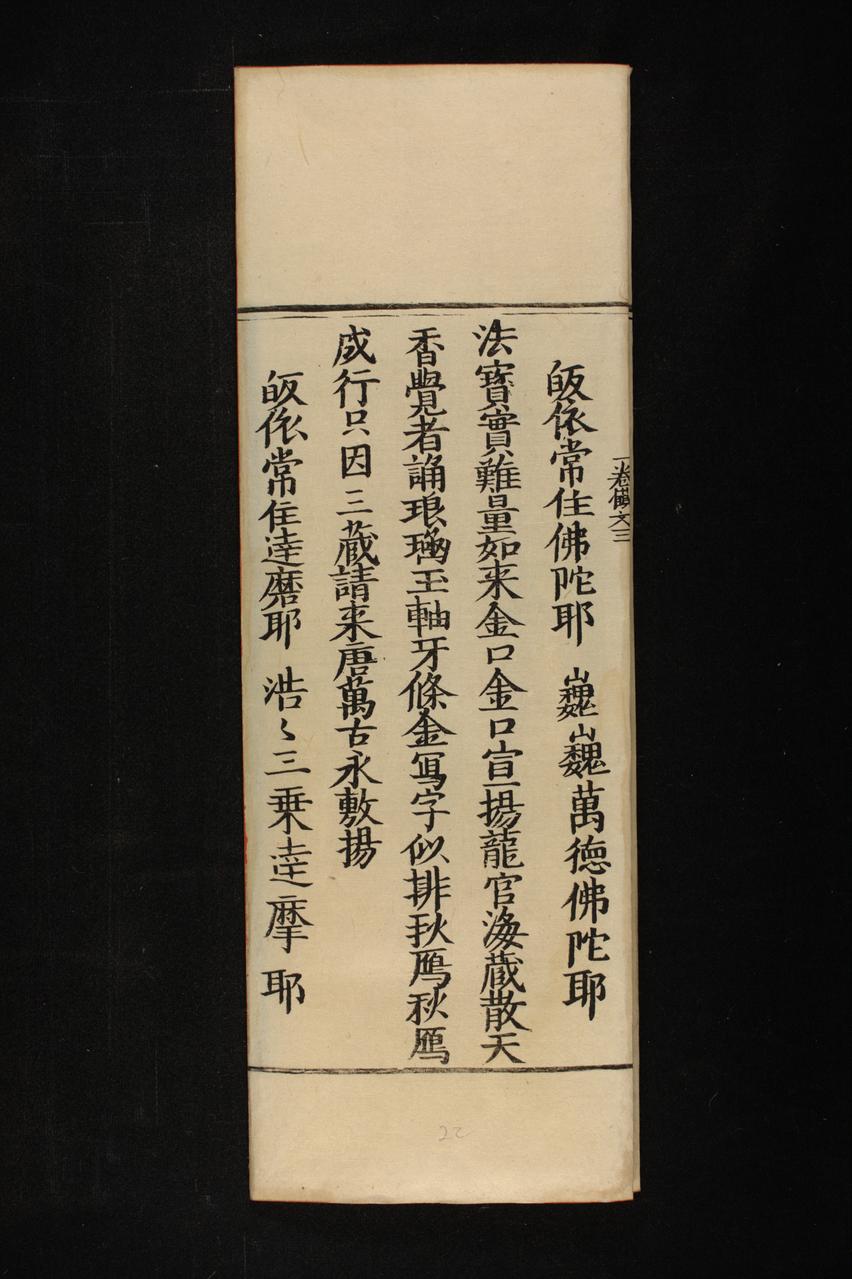 一卷儀文三
皈依常住佛陀耶　巍巍萬德佛陀耶
法寶實難量如来金口金口宣揚龍官海蔵散天
香覺者誦琅璚玉軸牙條金寫字似排秋鴈秋鴈
成行只因三蔵請来唐萬古永敷揚
皈依常住逹磨耶　浩〻三乗逹摩耶
22